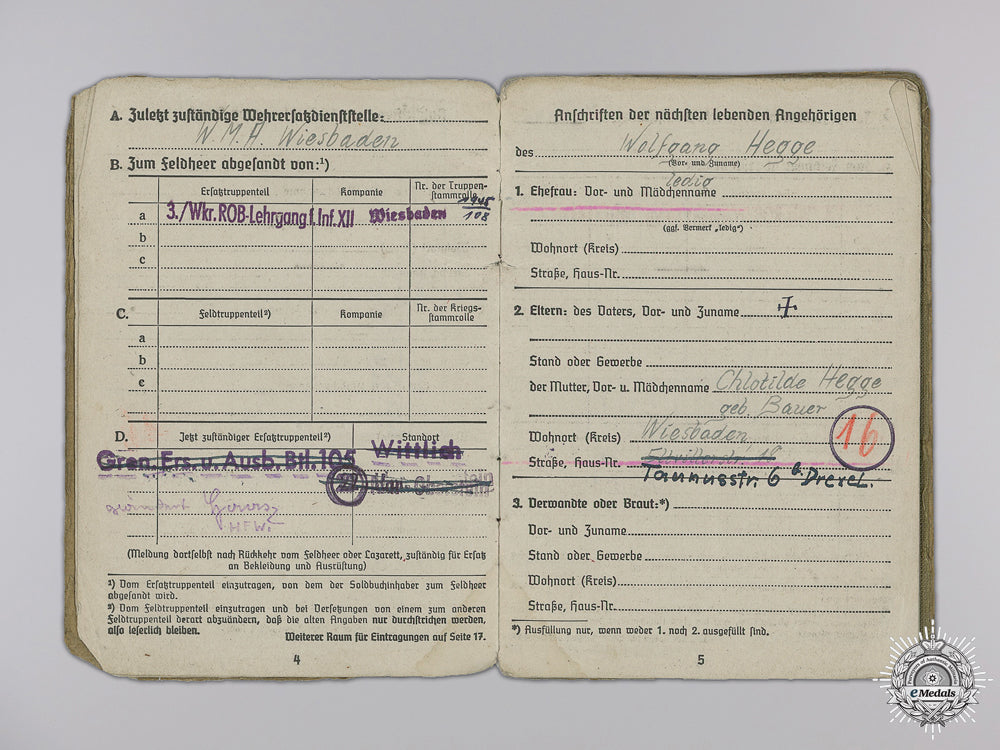 A. Zuletzt zuständige Wehrersatzdienststelle:
W.M.A. Wiesbaden
B. Zum Feldheer abgesandt von:¹)
Ersatztruppenteil Kompanie Nr. der Truppen-
stammrolle
1945
a 3./Wkr. ROB-Lehrgang f. Inf. XII Wiesbaden 108
b
c
C. Feldtruppenteil²) Kompanie Nr. der Kriegs-
stammrolle
a
b
c
D. Jetzt zuständiger Ersatztruppenteil²) Standort
Gren. Ers. u. Ausb. Btl. 105 Wittlich
(Meldung dortselbst nach Rückkehr vom Feldheer oder Lazarett, zuständig für Ersatz
an Bekleidung und Ausrüstung)
¹) Vom Ersatztruppenteil einzutragen, von dem der Soldbuchinhaber zum Feldheer
abgesandt wird.
²) Vom Feldtruppenteil einzutragen und bei Versetzungen von einem zum anderen
Feldtruppenteil derart abzuändern, daß die alten Angaben nur durchstrichen werden,
also leserlich bleiben.
Weiterer Raum für Eintragungen auf Seite 17.
4
Anschriften der nächsten lebenden Angehörigen
des Wolfgang Hegge
(Vor- und Zuname)
ledig
1. Ehefrau: Vor- und Mädchenname
(ggf. Vermerk „ledig“)
Wohnort (Kreis)
Straße, Haus-Nr.
2. Eltern: des Vaters, Vor- und Zuname
Stand oder Gewerbe
der Mutter, Vor- u. Mädchenname Chlotilde Hegge
geb. Bauer
Wohnort (Kreis) Wiesbaden
16
Straße, Haus-Nr.
Taunusstr. 6 b. Drexel.
3. Verwandte oder Braut:*)
Vor- und Zuname
Stand oder Gewerbe
Wohnort (Kreis)
Straße, Haus-Nr.
*) Ausfüllung nur, wenn weder 1. noch 2. ausgefüllt sind.
5
eMedals